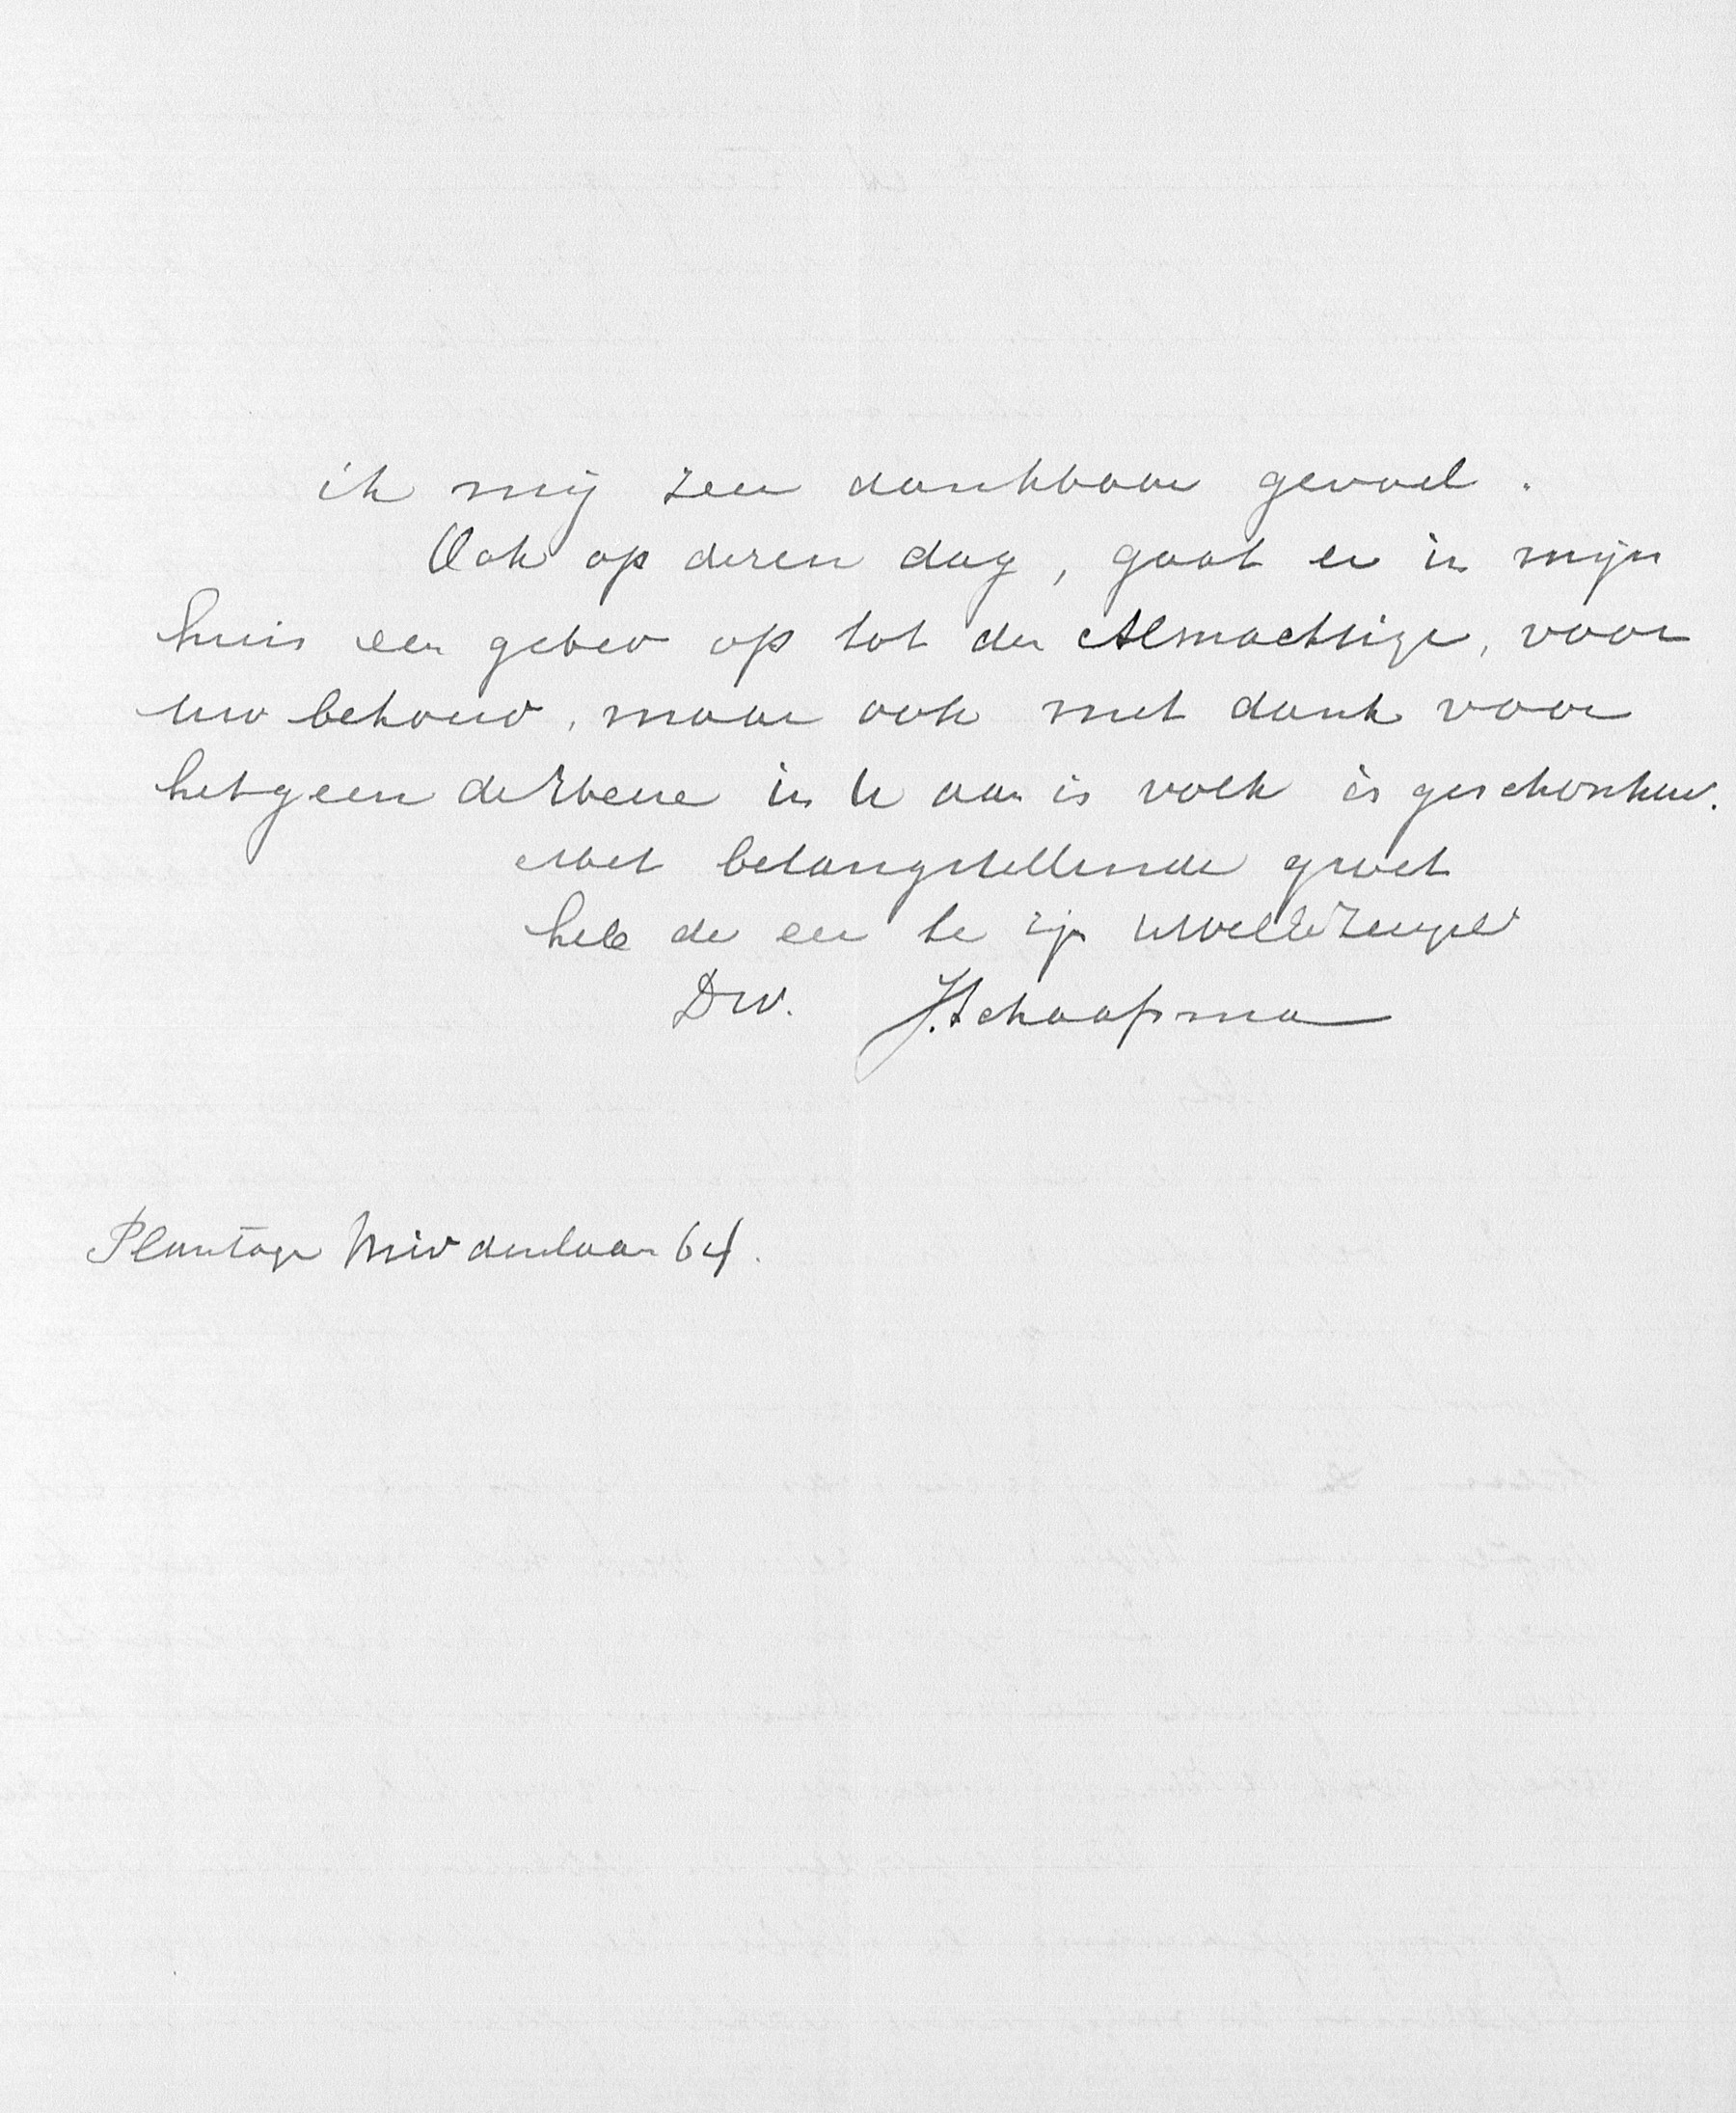 ik mij zeer dankbaar gevoel.
Ook op dezen dag, gaat er in mijn
huis een gebed op tot den Almachtige, voor
Uw behoud, maar ook met dank voor
hetgeen de Heere in U aan is volk is geschonken.
Met belangstellende groet
heb de eer te zijn UWelEd
Dw. J. Schaafsma
Plantage Middenlaan 64.